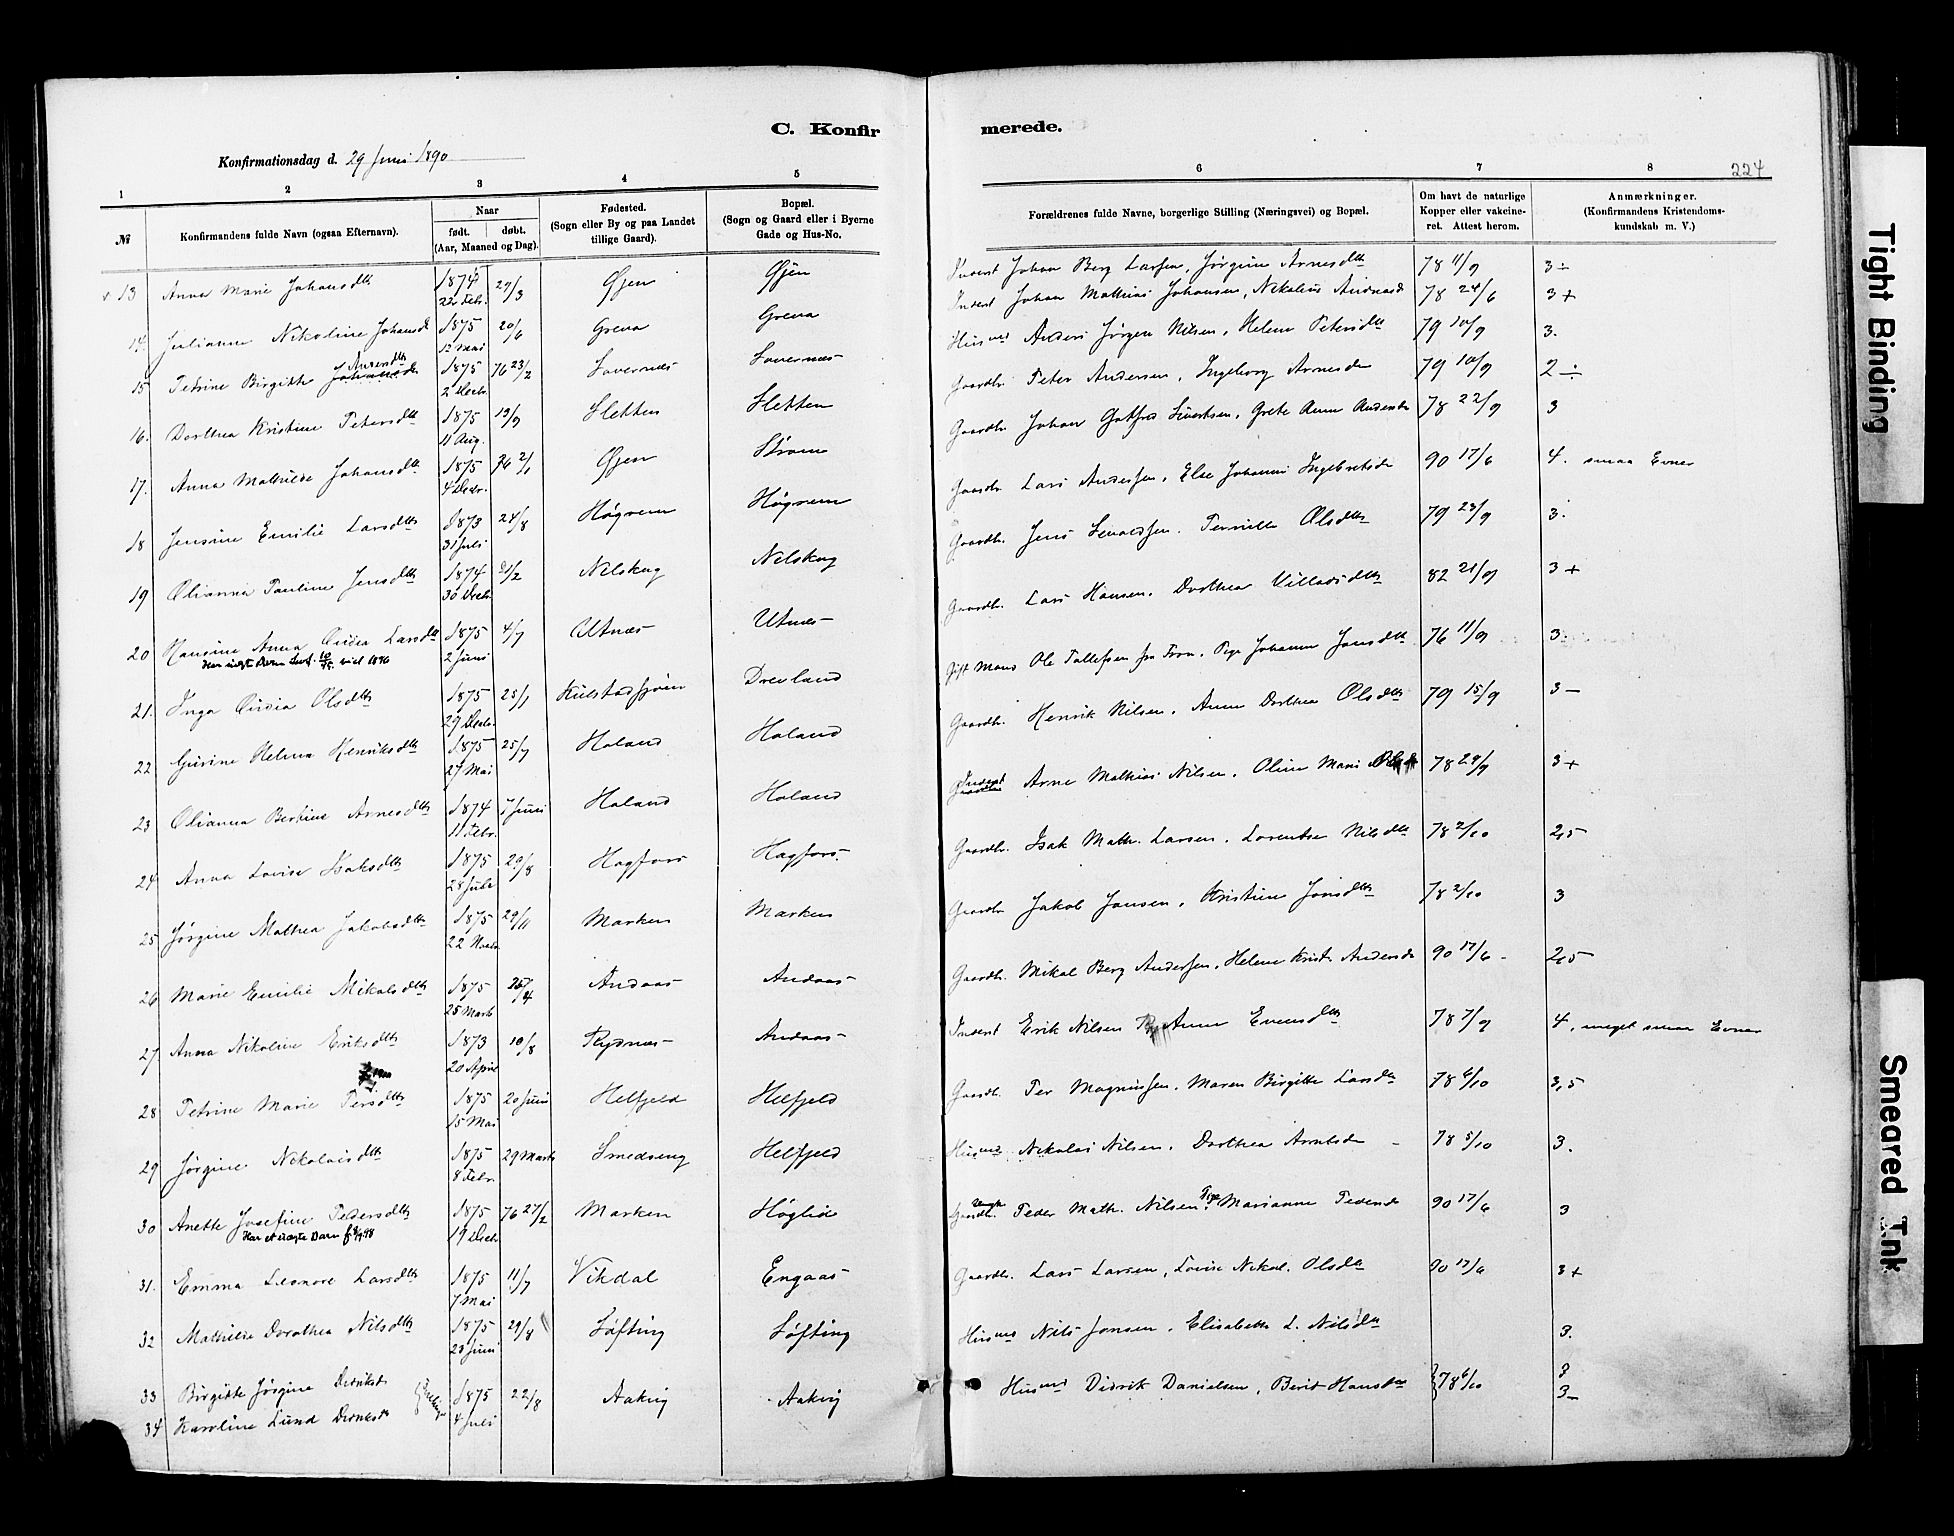 C. Konfir merede.
Konfirmationsdag d. 29 Juni 1890
224
1 2 3 4 5 6 7 8
№ Konfirmandens fulde Navn (ogsaa Efternavn). Naar født. døbt. (Aar, Maaned og Dag). Fødested. (Sogn eller By og paa Landet tillige Gaard). Bopæl. (Sogn og Gaard eller i Byerne Gade og Hus-No. Forældrenes fulde Navne, borgerlige Stilling (Næringsvei) og Bopæl. Om havt de naturlige Kopper eller vakcineret. Attest herom. Anmærkninger. (Konfirmandens Kristendomskundskab m. V.)
13 Anna Marie Johansdtr 1874 22 Febr. 29/3 Øjen Øjen Inderst Johan Berg Larsen, Jørgine Arnesdtr 78 11/9 3 ÷
14. Julianne Nikoline Johansd 1875 12 Mai 20/6 Greva Greva Inderst Johan Mathias Johansen, 78 24/6 3+
15 Petrine Birgitte Andersdtr 1875 2 Decbr. 76 23/2 Husmd Anders Jørgen Nilsen, Helene Petersdtr 79 10/9 3.
16. Dorthea Kristine Petersdtr 1875 11 Aug. 19/9 Sletten Sletten Gaardbr Peter Andersen, Ingeborg Arnesdr 79 10/9 2 ÷
17. Anna Mathilde Johansdtr 1875 4 Decbr. 76 2/1 Øjen Strøm Gaardbr Johan Gotfred Sivertsen, Grete Anna Andersdr 78 22/9 3
18 Jensine Emilie Larsdtr 1873 31 Juli 24/8 Gaardbr Lars Andersen, Else Johanna Ingebretsdr 90 17/6 4. smaa Evner
19 Olianna Pauline Jensdtr 1874 30 Decbr. 21/2 Nilskog Nilskog Gaardbr. Jens Sivaldsen. Pernille Olsdtr 79 23/9 3.
20 Hansine Anna Larsdtr 1875 2 Juni 4/7 Utnæs Utnæs Gaardbr. Lars Hansen. Dorthea Villadsdtr 82 21/9 3+
21. Inga Olsdtr 1875 25/1 Kulstadsjøen Drevland Gift Mand Ole Tollefsen fra Pige Johanna Jonsdtr 76 11/9 3.
22 Gurine Helma Henriksdtr 1875 27 Mai 25/7 Haland Haland Gaardbr. Henrik Nilsen. Anne Dorthea Olsdtr 79 15/9 3 –
23 Olianna Bertine Arnesdtr 1874 11 Febr. 7 Juni Haland Haland Inderst Arne Mathias Nilsen. Oline Marie 78 24/9 3+
24 Anna Lovise Isaksdtr 1875 28 Juli 29/8 Hagfors Hagfors Gaardbr. Isak Math. Larsen. Lorentse Nilsdtr 78 2/10 2,5
25 Jørgine Mathea Jakobsdtr 1875 22 Novbr 29/11 Marken Marken Gaardbr Jakob Jansen, Kristine Jonsdtr 78 2/10 3
26 Marie Emilie Mikalsdtr 1875 25 Marts Andaas Andaas Gaardbr. Mikal Berg Andersen, Helene Krist. Andersdr 90 17/6 2,5
27 Anna Nikoline Eriksdtr 1873 20 April 10/8 Rydnæs Andaas Inderst Erik Nilsen Anne Evensdtr 78 7/9 4, meget smaa Evner
28 Petrine Marie Persdtr 1875 15 Mai 20 Juni Helfjeld Helfjeld Gaardbr. Per Magnussen. Maren Birgitte Larsdtr 78 6/10 3,5
29 Jørgine Nikolaisdtr 1875 8 Febr 29 Marts Smedseng Helfjeld Husmd Nikolai Nilsen. Dorthea Arntsdr 78 5/10 3.
30 Anette Josefine Pedersdtr 1875 19 Decbr 76 27/2 Marken Høglid Peder Math. Nilsen Pige Marianne Pedersdr 90 17/6 3
31. Emma Leonore Larsdtr 1875 7 Mai 11/7 Vikdal Engaas Gaardbr. Lars Larsen, Lovise Nikol. Olsdtr 90 17/6 3+
32 Mathilde Dorothea Nilsdtr 1875 23 Juni 29/8 Løfting Løfting Husmd Nils Jonsen. Elisabeth L. Nilsdtr 3.
33 Birgitte Jørgine Didriksdr 1875 4 Juli 22/8 Aakvig Aakvig Husmd Didrik Danielsen, Berit Hansdtr 78 6/10 3
34 Karoline Lund 3–
Tight Binding
Smeared Ink